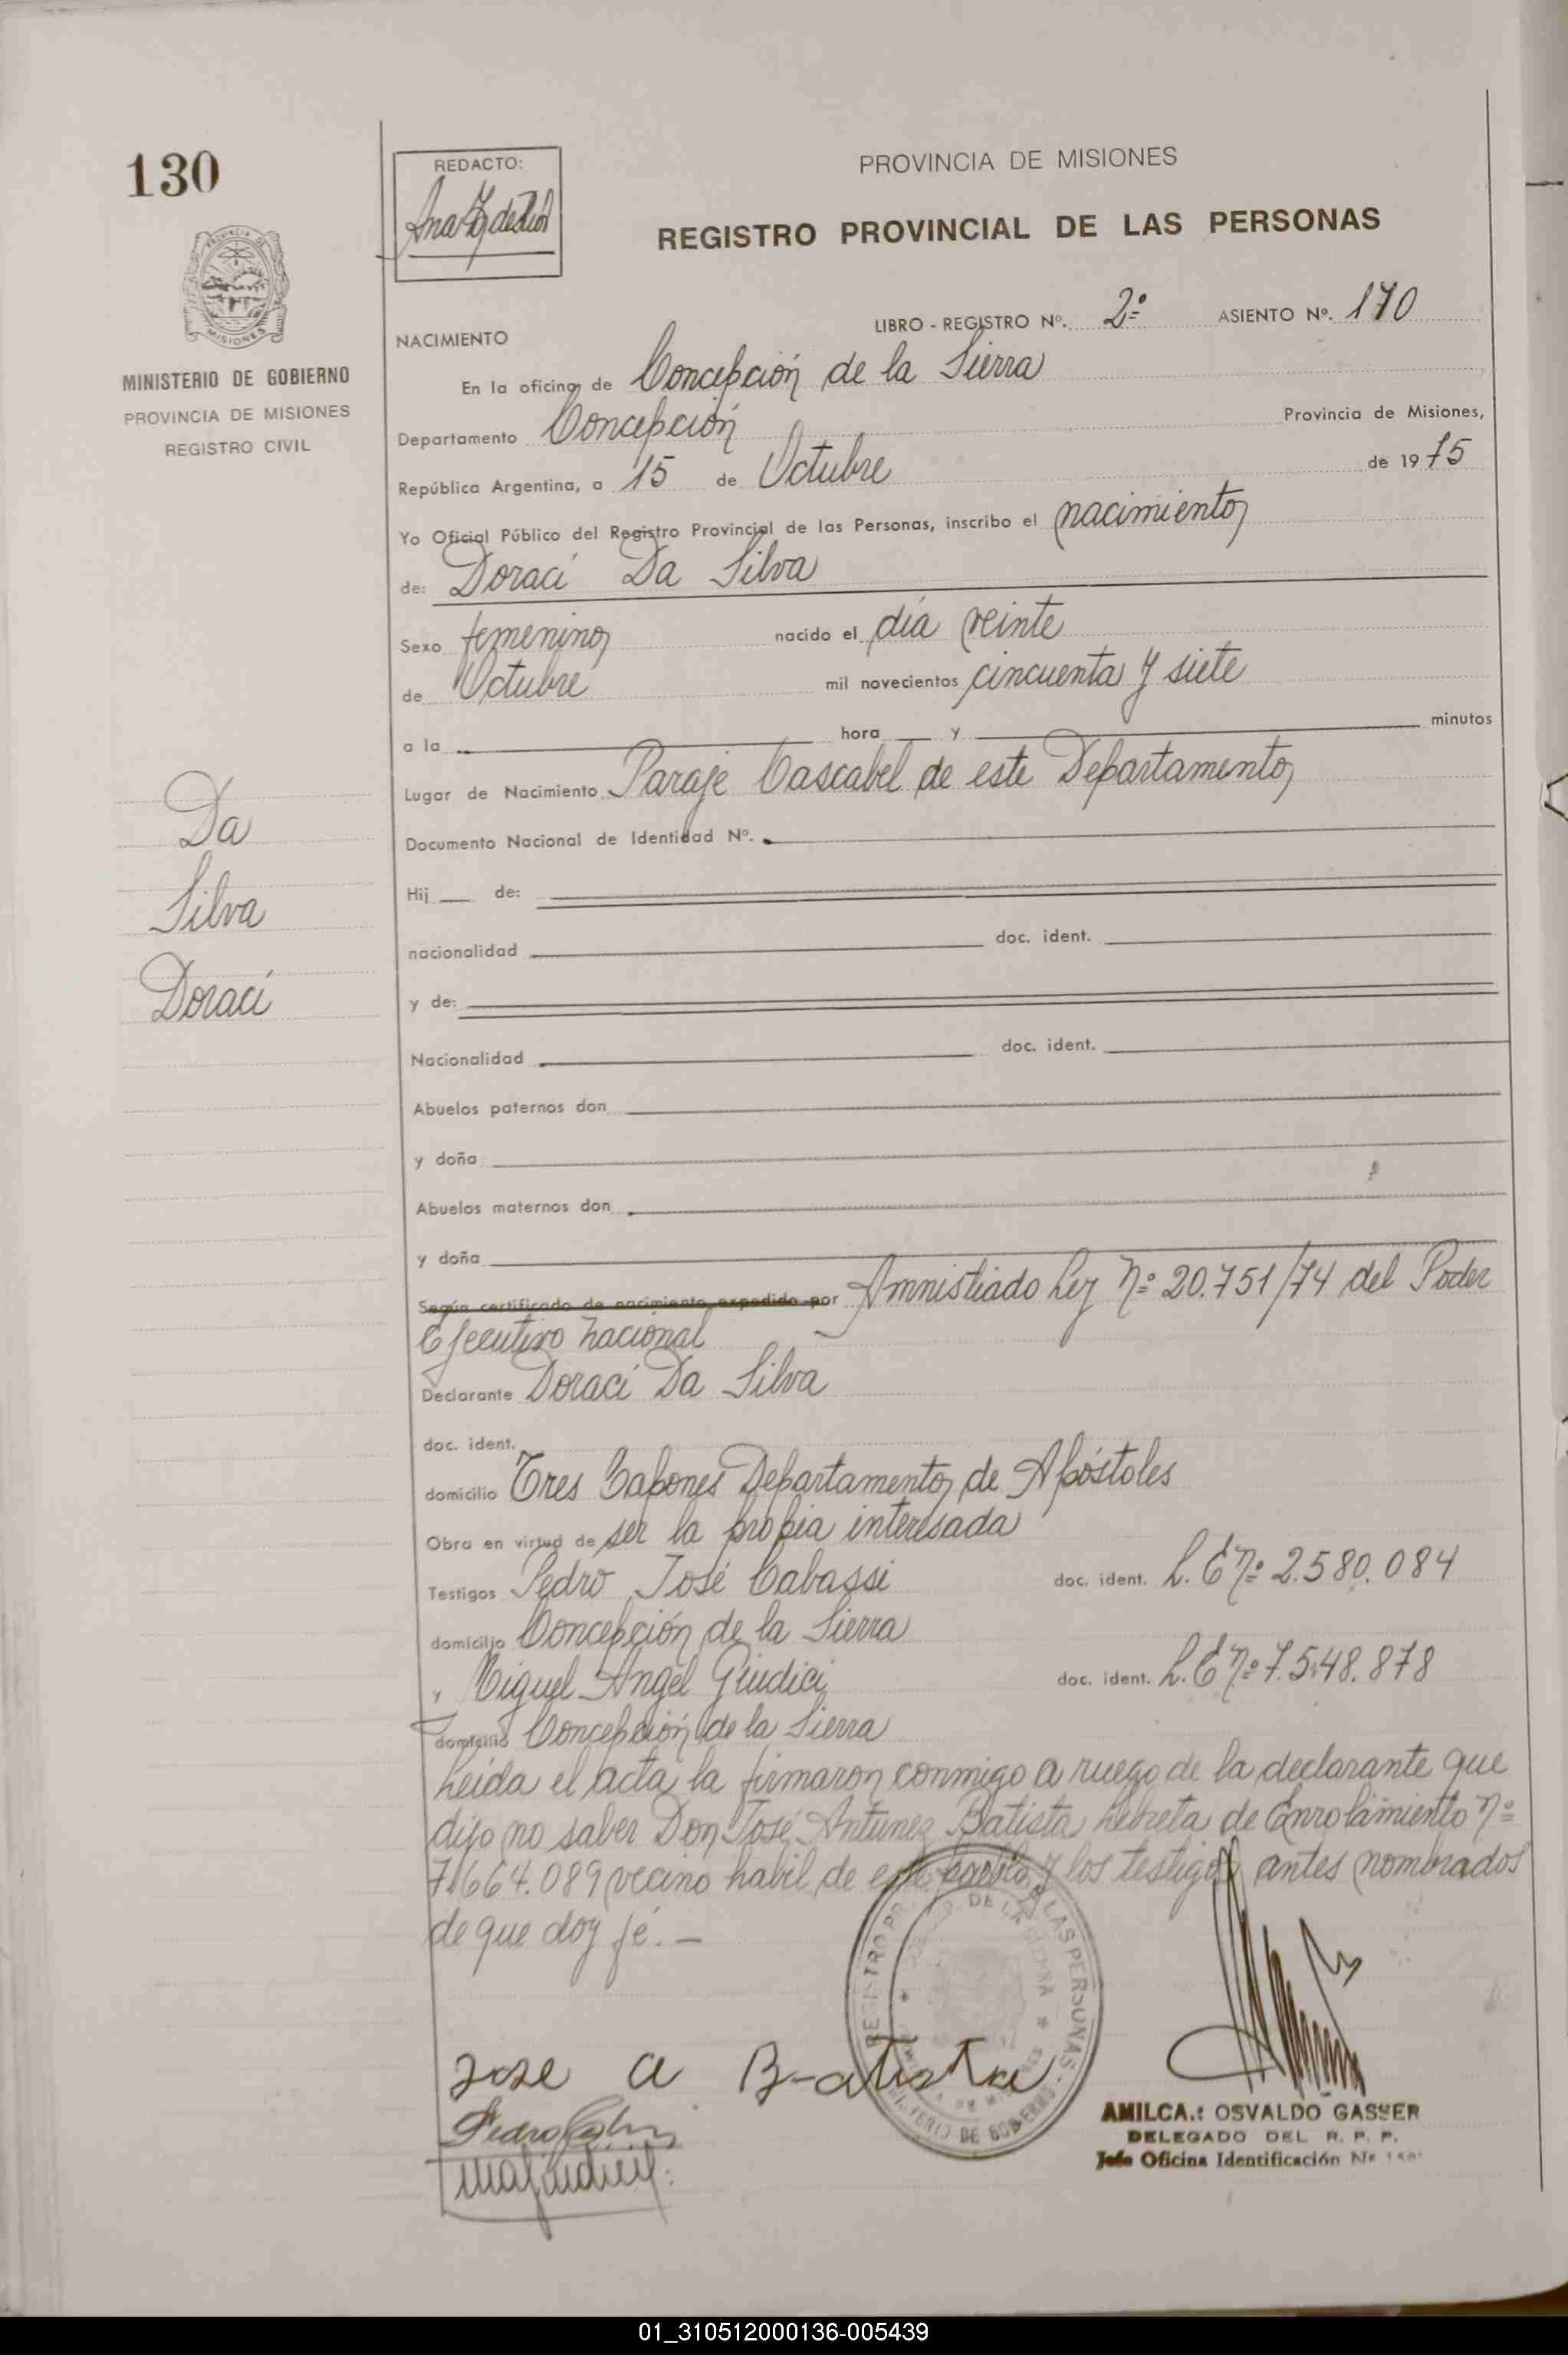 130
REDACTO:
PROVINCIA DE MISIONES
REGISTRO PROVINCIAL DE LAS PERSONAS
MINISTERIO DE GOBIERNO
PROVINCIA DE MISIONES
REGISTRO CIVIL
LIBRO - REGISTRO Nº. 2º ASIENTO Nº. 170
NACIMIENTO
En la oficina de Concepción de la Sierra
Departamento Concepción Provincia de Misiones,
República Argentina, a 15 de Octubre de 1975
Yo Oficial Público del Registro Provincial de las Personas, inscribo el nacimiento
de: Doraci Da Silva
Sexo femenino nacido el día veinte
de Octubre mil novecientos cincuenta y siete
a la hora y minutos
Lugar de Nacimiento Paraje Cascabel de este Departamento
Documento Nacional de Identidad Nº.
Da
Silva
Doraci
Hij de:
nacionalidad doc. ident.
y de:
Nacionalidad doc. ident.
Abuelos paternos don
y doña
Abuelos maternos don
y doña
Según certificado de nacimiento expedido por Amnistiado Ley Nº 20.751/74 del Poder
Ejecutivo Nacional
Declarante Doraci Da Silva
doc. ident.
domicilio Tres Capones Departamento de Apóstoles
Obra en virtud de ser la propia interesada
Testigos Pedro José Cabassi doc. ident. L. E Nº 2.580.084
domicilio Concepción de la Sierra
, Miguel Angel Giudici doc. ident. L. E Nº 7.548.878
domicilio Concepción de la Sierra
Leida el acta la firmaron conmigo a ruego de la declarante que
dijo no saber Don José Antunez Batista Libreta de Enrolamiento Nº
7.664.089 vecino habil de este pueblo y los testigos antes nombrados
de que doy fé. —
REGISTRO PR DE LAS PERSONAS - MINISTERIO DE GOBIERNO
Jose a Batista
AMILCA.: OSVALDO GASSER
DELEGADO DEL R. P. P.
Jefe Oficina Identificación Nº
01_310512000136-005439